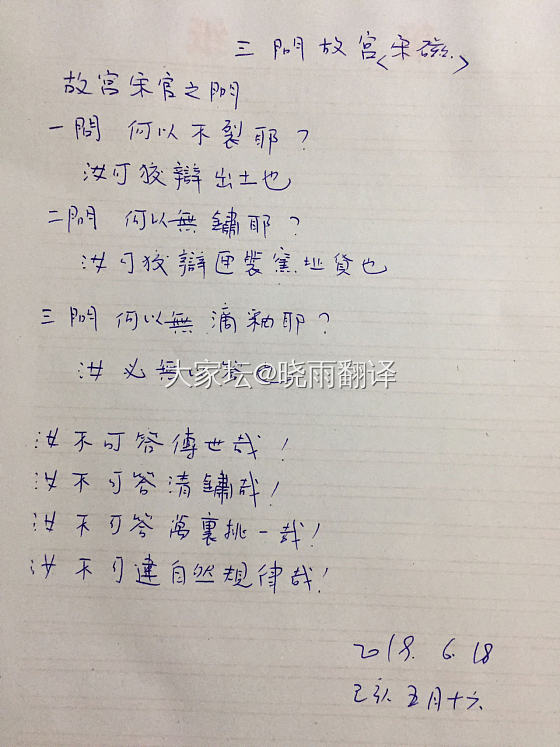 三問故宫<宋磁>
故宫宋官之問
一問 何以不裂耶?
汝可狡辯出土也
二問 何以無鏽耶?
汝可狡辯匣裝窯址貨也
三問 何以無滴釉耶?
汝必無 答
大家坛@晓雨翻译
汝不可答傳世哉!
汝不可答清鏽哉!
汝不可答萬裏挑一哉!
汝不可違自然規律哉!
2019. 6. 18
己亥 五月十六